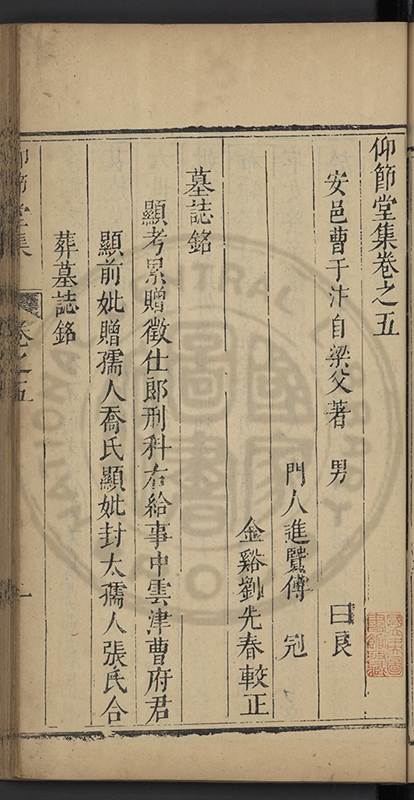 仰節堂集卷之五
安邑曹于汴自梁父著 男 曰良
門人進賢傅冠
金谿劉先春較正
墓誌銘
顯考累贈徵仕郎刑科右給事中雲津曹府君
顯前妣贈孺人喬氏顯妣封太孺人張氏合
葬墓誌銘
仰節堂集 卷之五 一